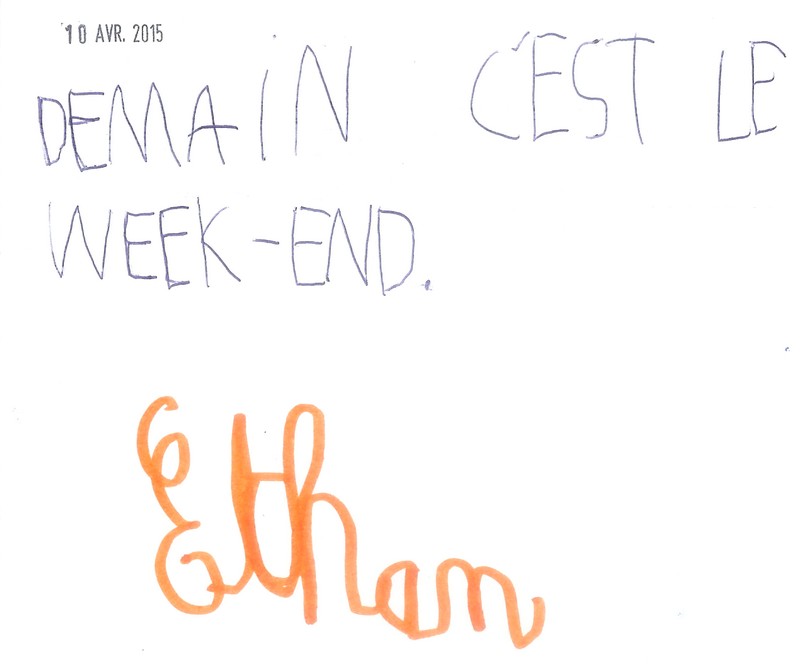 10 AVR. 2015
DEMAIN C'EST LE
WEEK-END.
Ethan